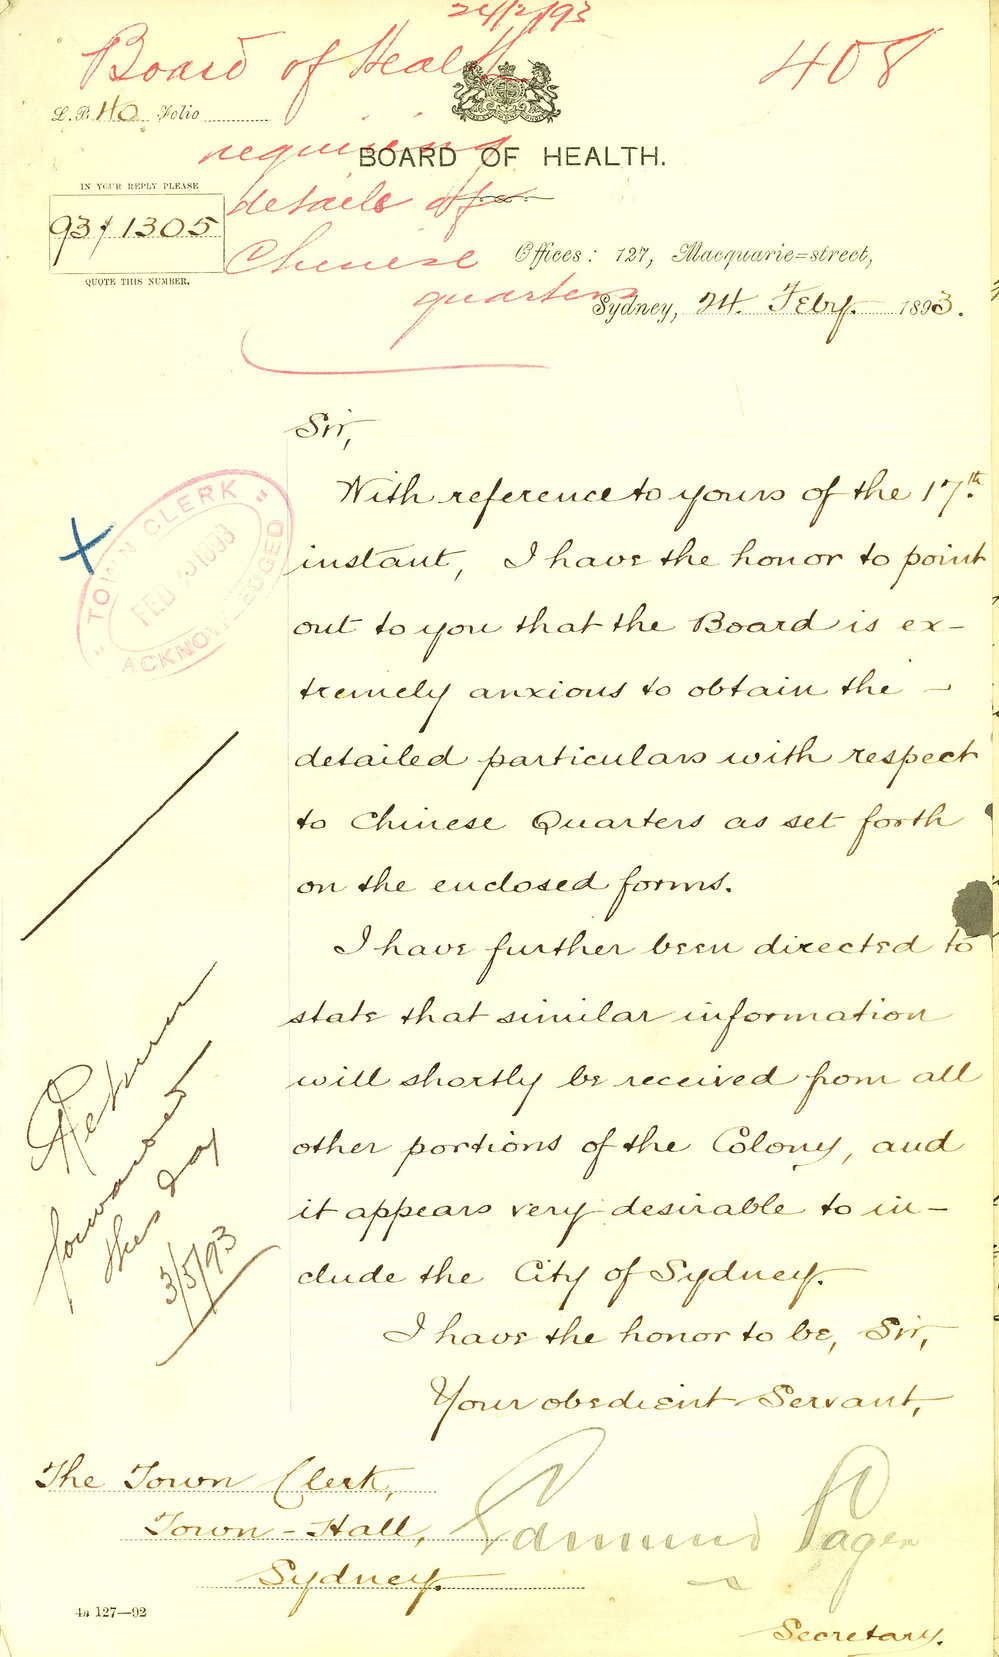 24/2/93
Board of Health 408
L. B. 40 Folio
requiring
BOARD OF HEALTH.
IN YOUR REPLY PLEASE
details of
93/1305
Chinese
Offices: 127, Macquarie=street,
QUOTE THIS NUMBER.
quarters
Sydney, 24. Feby. 1893.
Sir,
With reference to yours of the 17th.
instant, I have the honor to point
out to you that the Board is ex-
tremely anxious to obtain the -
detailed particulars with respect
to Chinese Quarters as set forth
on the enclosed forms.
I have further been directed to
state that similar information
will shortly be received from all
other portions of the Colony, and
it appears very desirable to in-
clude the City of Sydney.
I have the honor to be, Sir,
Your obedient Servant,
"TOWN CLERK"
FEB 1893
ACKNOWLEDGED
Return
forwarded
this day
3/5/93
The Town Clerk,
Town-Hall,
Sydney.
Edmund Sager
4a 127—92
Secretary.